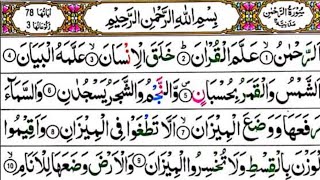 سُورَةُ الرَّحْمٰنِ مَدَنِيَّةٌ
بِسْمِ اللهِ الرَّحْمٰنِ الرَّحِيْمِ
اٰيَاتُهَا 78
رُكُوْعَاتُهَا 3
اَلرَّحْمٰنُ ۙ﴿1﴾ عَلَّمَ الْقُرْاٰنَ ؕ﴿2﴾ خَلَقَ الْاِنْسَانَ ۙ﴿3﴾ عَلَّمَهُ الْبَيَانَ ﴿4﴾
اَلشَّمْسُ وَالْقَمَرُ بِحُسْبَانٍ ۪﴿5﴾ وَّالنَّجْمُ وَالشَّجَرُ يَسْجُدٰنِ ﴿6﴾ وَالسَّمَآءَ
رَفَعَهَا وَوَضَعَ الْمِيْزَانَ ۙ﴿7﴾ اَلَّا تَطْغَوْا فِى الْمِيْزَانِ ﴿8﴾ وَاَقِيْمُوا
الْوَزْنَ بِالْقِسْطِ وَلَا تُخْسِرُوا الْمِيْزَانَ ﴿9﴾ وَالْاَرْضَ وَضَعَهَا لِلْاَنَامِ ۙ﴿10﴾